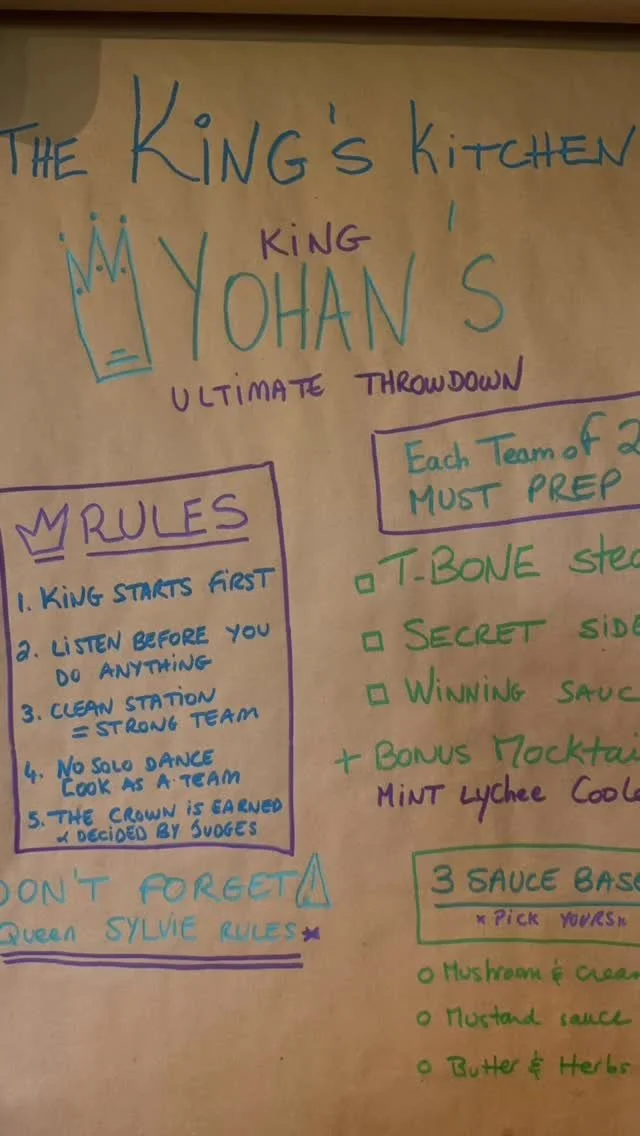 THE KiNG'S KiTCHEN
KiNG
YOHAN'S
ULTiMATE THROWDOWN
RULES
1. KiNG STARTS FiRST
2. LiSTEN BEFORE YOU
DO ANYTHiNG
3. CLEAN STATiON
= STRONG TEAM
4. NO SOLO DANCE
COOK AS A TEAM
5. THE CROWN iS EARNED
& DECiDED BY JUDGES
DON'T FORGET
Queen SYLViE RULES*
Each Team of 2
MUST PREP
T-BONE stea
SECRET SiDE
WiNNiNG SAUC
+ BONUS Mocktai
MiNT Lychee Coole
3 SAUCE BASE
* PiCK YOURS *
Mushroom & crea
Mustard sauce
Butter & Herbs